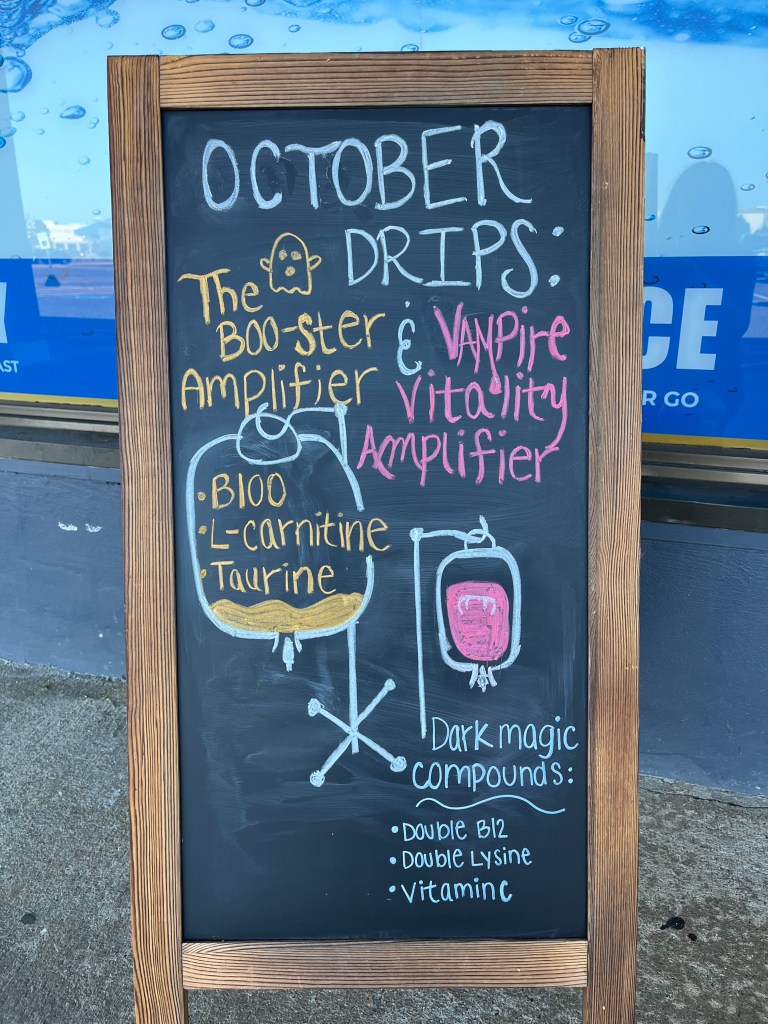 OCTOBER
DRIPS:
The
BOO-ster
Amplifier
&
Vampire
Vitality
Amplifier
• B100
• L-carnitine
• Taurine
Dark magic
compounds:
• Double B12
• Double Lysine
• Vitamin C
CE
R GO
AST